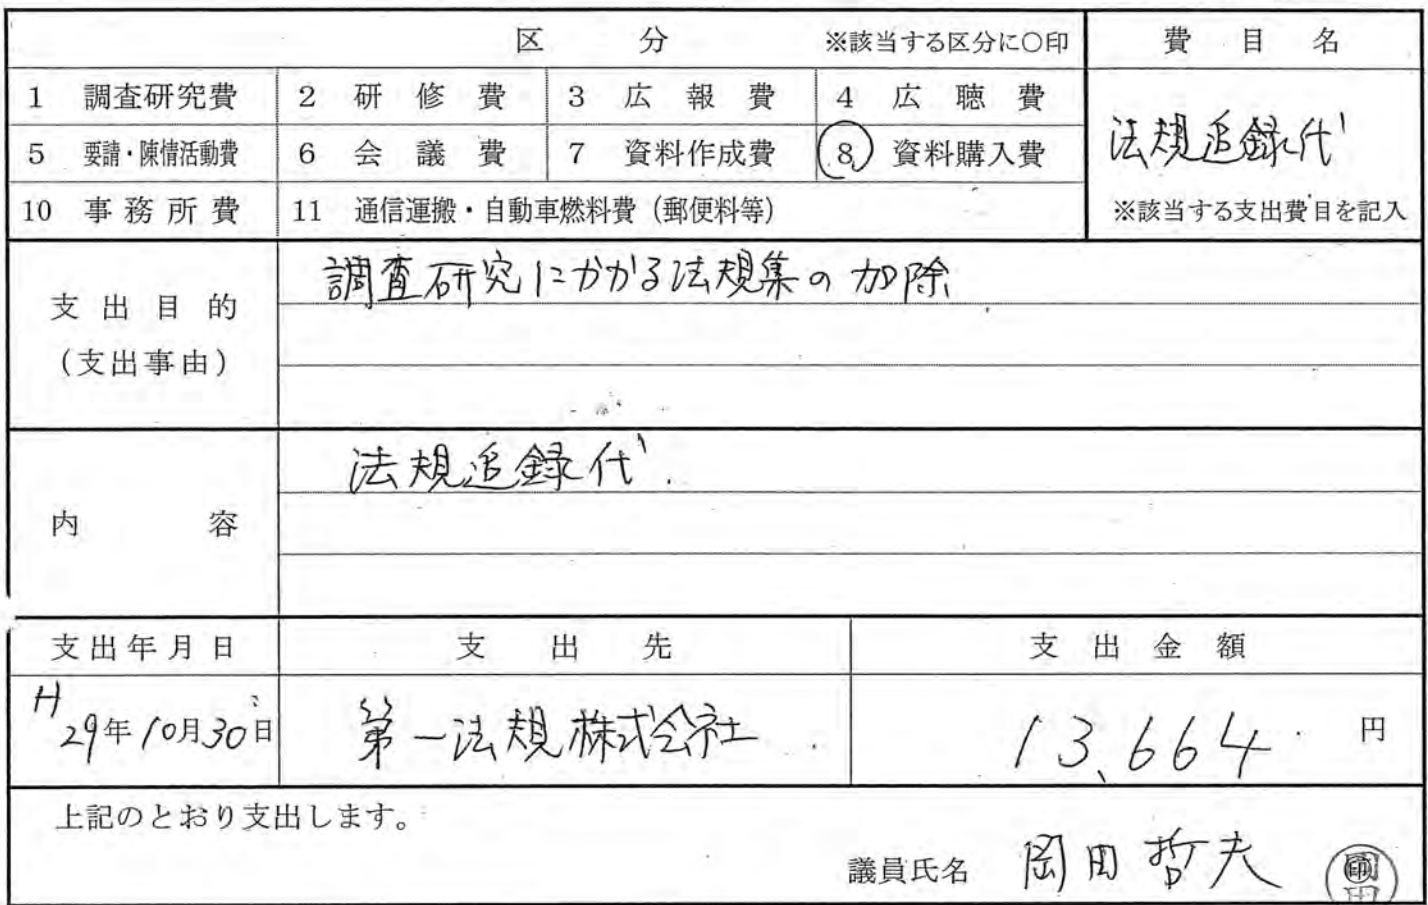 区 分 ※該当する区分に○印 費目名
1 調査研究費 2 研修費 3 広報費 4 広聴費
法規追録代
5 要請・陳情活動費 6 会議費 7 資料作成費 8 資料購入費
10 事務所費 11 通信運搬・自動車燃料費(郵便料等) ※該当する支出費目を記入
支出目的
(支出事由)
調査研究にかかる法規集の加除
内容
法規追録代
支出年月日 支出先 支出金額
H29年10月30日 第一法規株式会社 13,664 円
上記のとおり支出します。
議員氏名 岡田哲夫 印